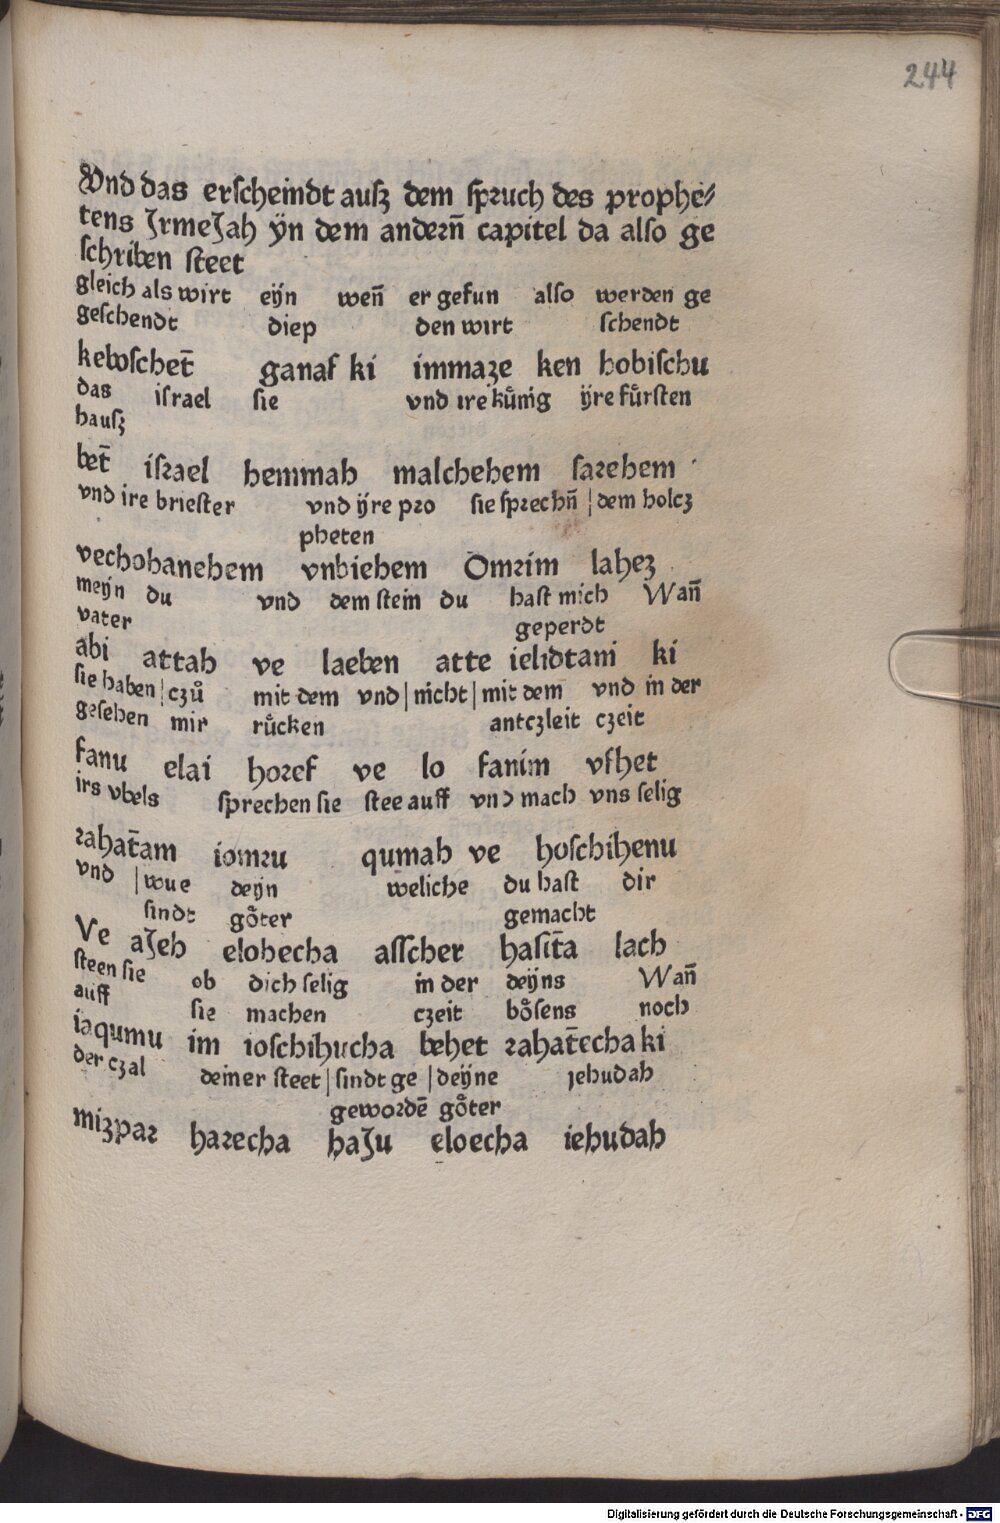 244
Vnd das erscheindt ausz dem spruch des prophe/
tens JrmeJah ÿn dem andern̄ capitel da also ge
schriben steet
gleich als wirt eÿn wen̄ er gefun also werden ge
geschendt diep den wirt schendt
keboschet̄ ganaf ki immaze ken hobischu
das israel sie vnd ire kůnig ÿre fůrsten
hausz
bet̄ israel hemmah malchehem sarehem
vnd ire briester vnd ÿre pro sie sprechn̄ | dem holcz
pheten
vechohanehem vnbiehem Omrim lahez
meÿn du vnd dem stein du hast mich Wan̄
vater geperdt
abi attah ve laeben atte ielidtani ki
sie haben | czů mit dem vnd | nicht | mit dem vnd in der
gesehen mir růcken antczleit czeit
fanu elai horef ve lo fanim vfhet
irs vbels sprechen sie stee auff vnd mach vns selig
rahat̄am iomru qumah ve hoschihenu
vnd | wue deÿn weliche du hast dir
sindt gôter gemacht
Ve aJeh elohecha asscher hasit̄a lach
steen sie ob dich selig in der deÿns Wan̄
auff sie machen czeit bôsens noch
iaqumu im ioschihucha behet rahat̄echa ki
der czal deiner steet | sindt ge | deÿne jehudah
gewordē gôter
mizpar harecha haJu eloecha iehudah
Digitalisierung gefördert durch die Deutsche Forschungsgemeinschaft - DFG